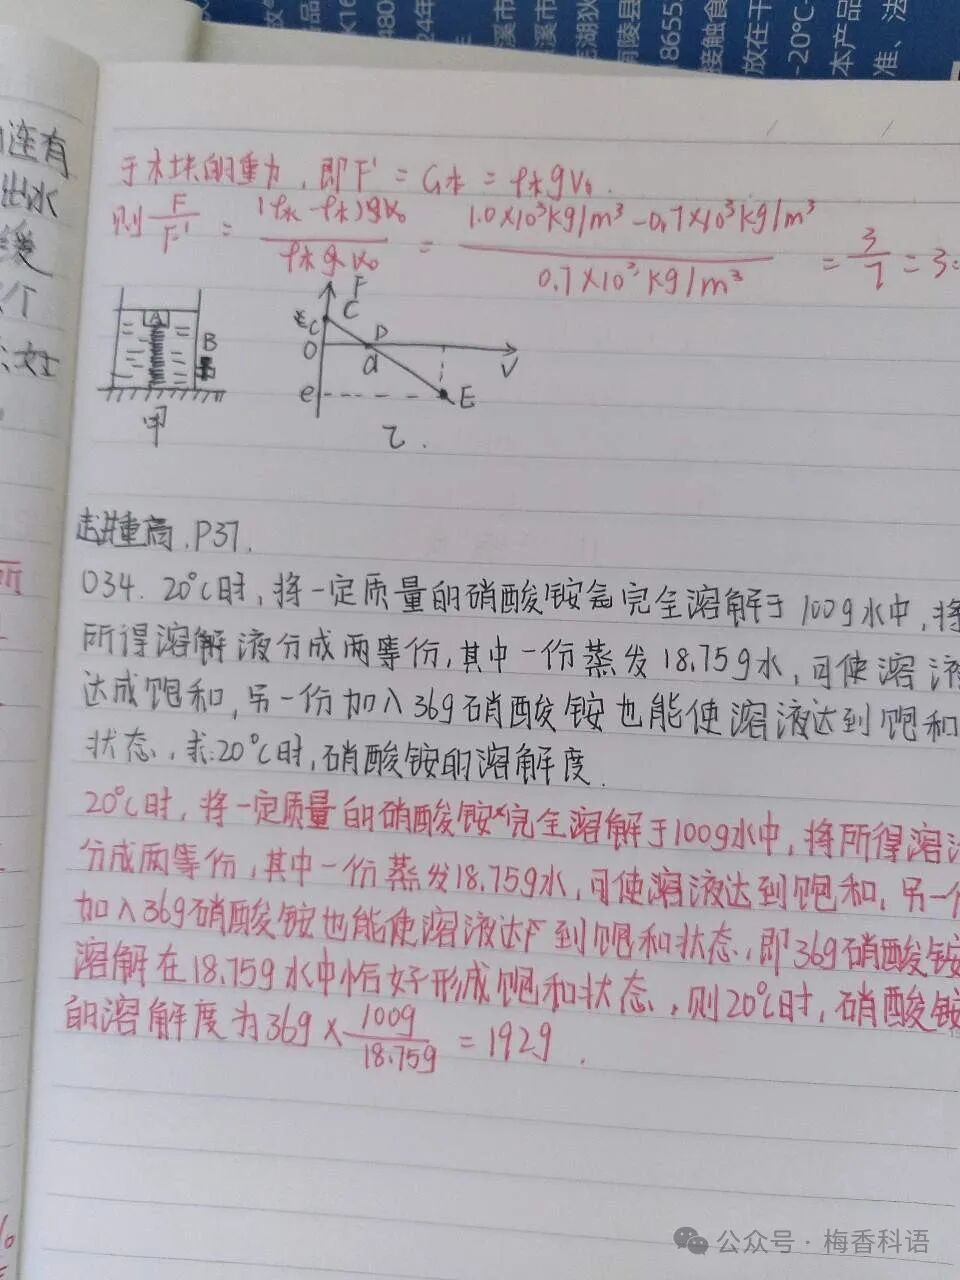 于木块的重力，即F' = G木 = ρ木gV₀.
则 F/F' = (ρ水-ρ木)gV₀/ρ木gV₀ = 1.0×10³kg/m³-0.7×10³kg/m³/0.7×10³kg/m³ = 3/7 = 3:
F
C
c
D
O
d
V
A
B
e
E
甲
乙.
走进重高.P37.
034. 20℃时,将一定质量的硝酸铵完全溶解于100g水中,将
所得溶解液分成两等份,其中一份蒸发18.75g水,可使溶液
达成饱和,另一份加入36g硝酸铵也能使溶液达到饱和
状态.求:20℃时,硝酸铵的溶解度.
20℃时,将一定质量的硝酸铵完全溶解于100g水中,将所得溶液
分成两等份,其中一份蒸发18.75g水,可使溶液达到饱和.另一份
加入36g硝酸铵也能使溶液达到饱和状态,即36g硝酸铵
溶解在18.75g水中恰好形成饱和状态,则20℃时,硝酸铵
的溶解度为36g×100g/18.75g=192g.
连有
出水
个
所
480
24年
溪市
溪市
芜湖
南陵县
8655
接触食
放在干
-20℃
本产品
准、法
公众号·梅香科语